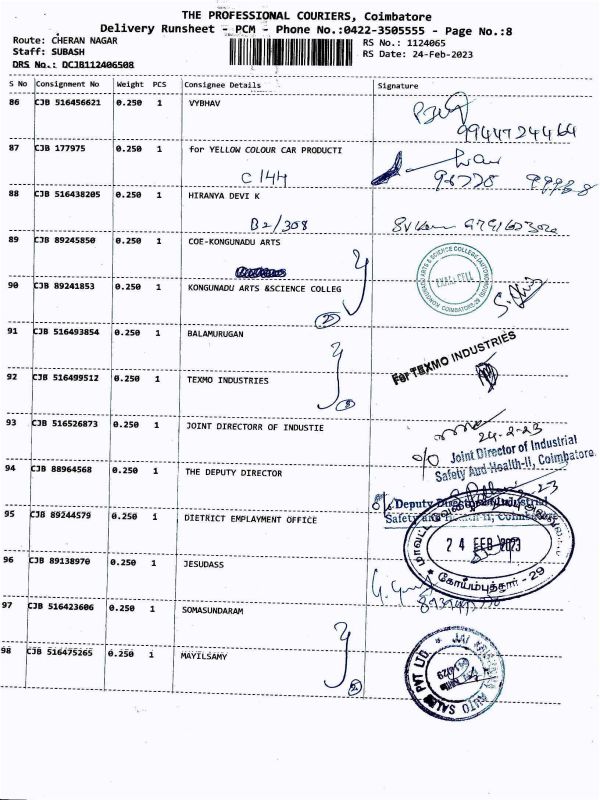 THE PROFESSIONAL COURIERS, Coimbatore
Delivery Runsheet - PCM - Phone No.:0422-3505555 - Page No.:8
Route: CHERAN NAGAR RS No.: 1124065
Staff: SUBASH RS Date: 24-Feb-2023
DRS No.: DCJB112406508
S No Consignment No Weight PCS Consignee Details Signature
86 CJB 516456621 0.250 1 VYBHAV
9944724464
87 CJB 177975 0.250 1 for YELLOW COLOUR CAR PRODUCTI
C 144
88 CJB 516438205 0.250 1 HIRANYA DEVI K
B2/308
89 CJB 89245850 0.250 1 COE-KONGUNADU ARTS
KONGUNADU ARTS & SCIENCE COLLEGE (AUTONOMOUS) COIMBATORE-29
EXAM. CELL
90 CJB 89241853 0.250 1 KONGUNADU ARTS &SCIENCE COLLEG
2
91 CJB 516493854 0.250 1 BALAMURUGAN
For TEXMO INDUSTRIES
92 CJB 516499512 0.250 1 TEXMO INDUSTRIES
93 CJB 516526873 0.250 1 JOINT DIRECTORR OF INDUSTIE
24-2-23
O/O Joint Director of Industrial
Safety And Health-II, Coimbatore.
94 CJB 88964568 0.250 1 THE DEPUTY DIRECTOR
O/o Deputy Director Industrial
Safety and Health-II, Coimbatore
95 CJB 89244579 0.250 1 DIETRICT EMPLAYMENT OFFICE
24 FEB 2023
கோயம்புத்தூர் - 29
96 CJB 89138970 0.250 1 JESUDASS
97 CJB 516423606 0.250 1 SOMASUNDARAM
98 CJB 516475265 0.250 1 MAYILSAMY
2
AUTO SALES PVT LTD.